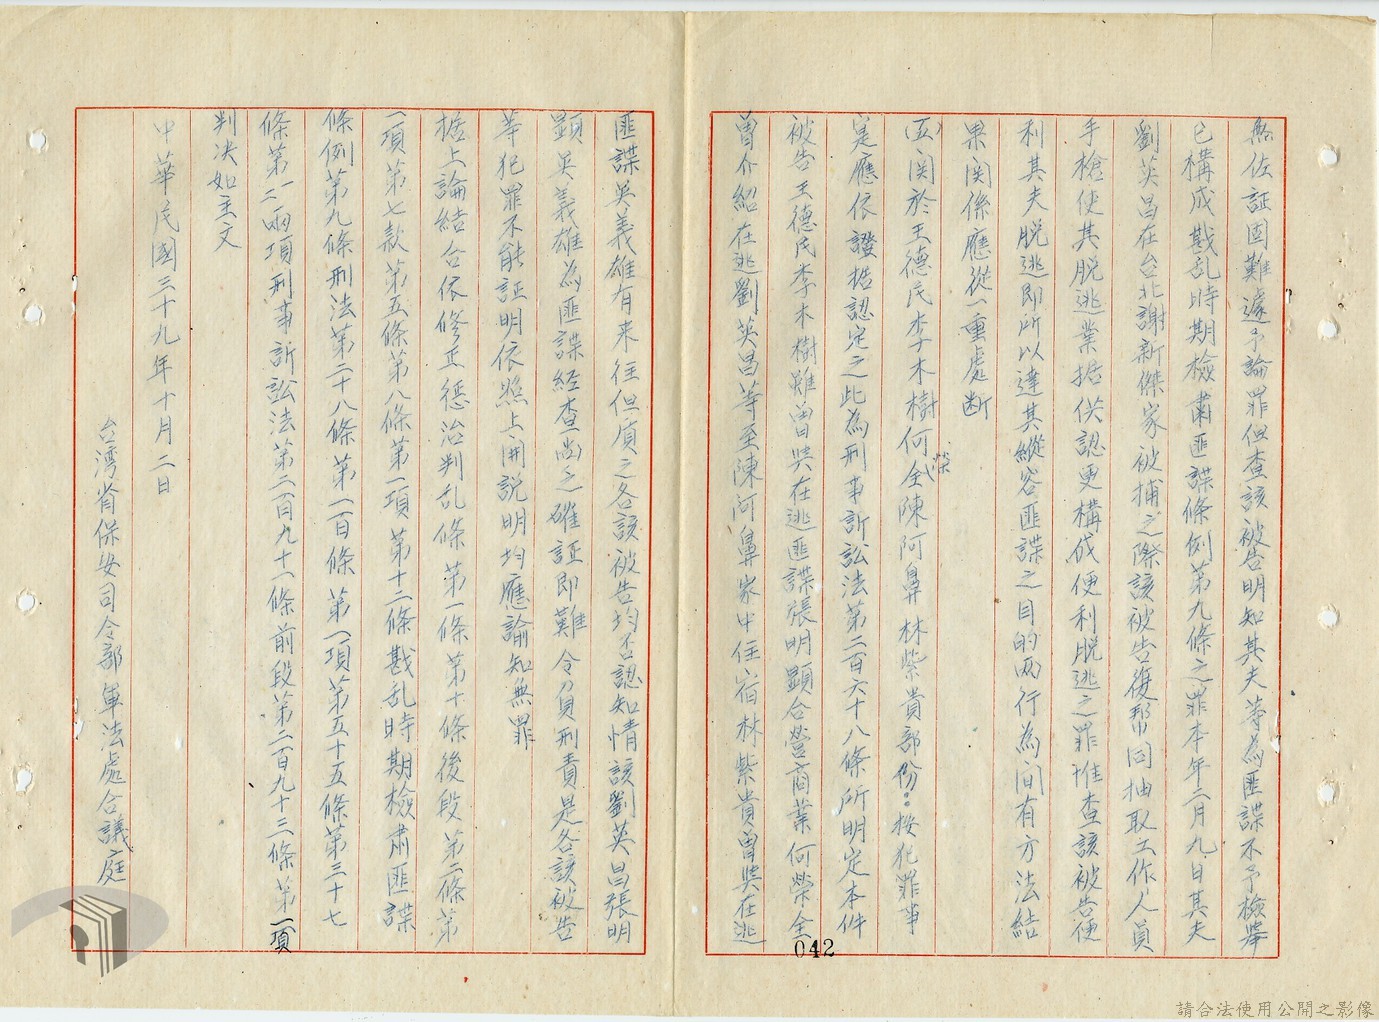 無佐証固難遽予論罪但查該被告明知其夫等為匪諜不予檢舉
已構成戡乱時期檢肅匪諜條例第九條之罪本年二月九日其夫
劉英昌在台北謝新傑家被捕之際該被告復帮同抽取工作人員
手槍使其脱逃業据供認更構成便利脱逃之罪惟查該被告便
利其夫脱逃即所以達其縱容匪諜之目的兩行為间有方法結
果関係應從一重處断
(五)関於王德民李木樹何榮全陳阿鼻林紫貴部份：按犯罪事
是應依證据認定之此為刑事訴訟法第二百六十八條所明定本件
被告王德民李木樹雖曽與在逃匪諜張明顯合營商業何榮全
曽介紹在逃劉英昌等至陳阿鼻家中住宿林紫貴曽與在逃
匪諜吳義雄有来往但質之各該被告均否認知情該劉英昌張明
顕吳義雄為匪諜経查尚乏確証即難令負刑責是各該被告
等犯罪不能証明依照上開説明均應諭知無罪
据上論結合依修正惩治判乱條第一條第十條後段第二條第
一項第七款第五條第八條第一項第十二條戡乱時期檢肅匪諜
條例第九條刑法第二十八條第一百條第一項第五十五條第三十七
條第一二兩項刑事訴訟法第二百九十一條前段第二百九十三條第一項
判决如主文
中華民國三十九年十月二日
台湾省保安司令部軍法處合議庭
042
請合法使用公開之影像